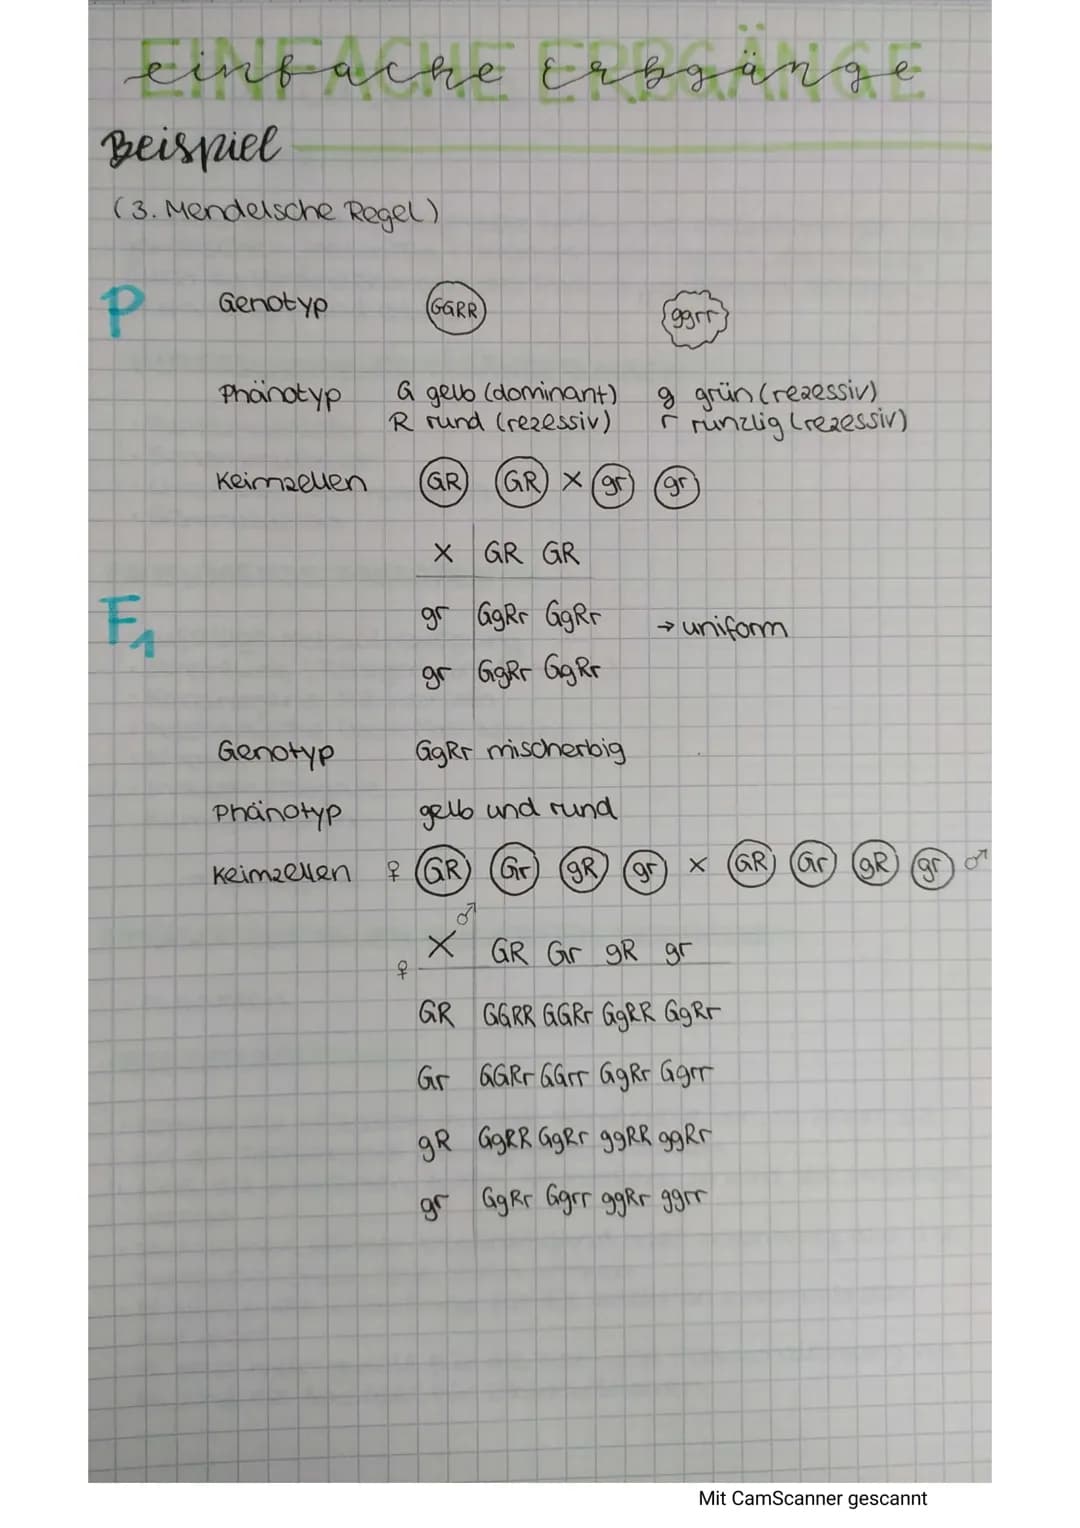 EINFACHE ERBGÄNGE
einfache Erbgänge
Beispiel
(3. Mendelsche Regel)
P Genotyp GGRR ggrr
Phänotyp G gelb (dominant) g grün (rezessiv)
R rund (rezessiv) r runzlig (rezessiv)
Keimzellen GR GR × gr gr
× GR GR
F1 gr GgRr GgRr → uniform
gr GgRr GgRr
Genotyp GgRr mischerbig
Phänotyp gelb und rund
Keimzellen ♀ GR Gr gR gr × GR Gr gR gr ♂
♂
♀ × GR Gr gR gr
GR GGRR GGRr GgRR GgRr
Gr GGRr GGrr GgRr Ggrr
gR GgRR GgRr ggRR ggRr
gr GgRr Ggrr ggRr ggrr
Mit CamScanner gescannt